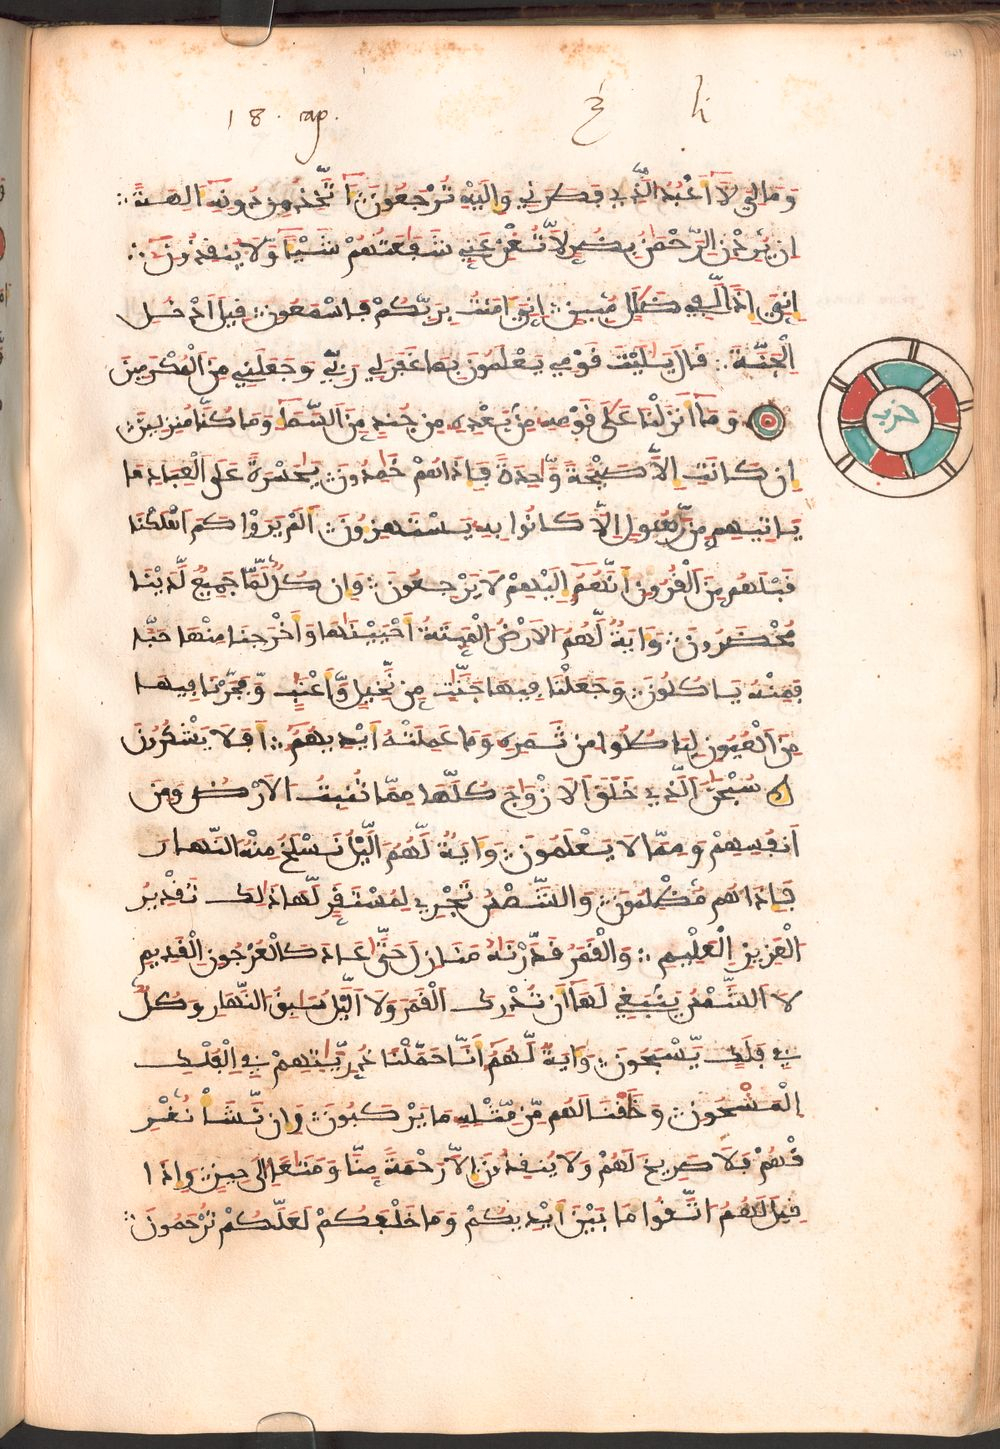 18. cap.
وَمَالِيَ لَآ أَعْبُدُ الَّذِے فَطَرَنِے وَإِلَيْهِ تُرْجَعُونَ ءَاتَّخِذُ مِن دُونِهِۦٓ ءَالِهَةً
اِنْ يُّرِدْنِ الرَّحْمَٰنُ بِضُرٍّ لَّا تُغْنِ عَنِّے شَفَٰعَتُهُمْ شَيْـٔاً وَّلَا يُنقِذُونِ
إِنِّيَ إِذاً لَّفِے ضَلَٰلٍ مُّبِينٍ إِنِّيَ ءَامَنتُ بِرَبِّكُمْ فَاسْمَعُونِ قِيلَ ادْخُلِ
الْجَنَّةَ قَالَ يَٰلَيْتَ قَوْمِے يَعْلَمُونَ بِمَا غَفَرَ لِے رَبِّے وَجَعَلَنِے مِنَ الْمُكْرَمِينَ
حزب
وَمَآ أَنزَلْنَا عَلَىٰ قَوْمِهِۦ مِنۢ بَعْدِهِۦ مِن جُندٍ مِّنَ السَّمَآءِ وَمَا كُنَّا مُنزِلِينَ
إِن كَانَتِ اِلَّا صَيْحَةً وَّٰحِدَةً فَإِذَا هُمْ خَٰمِدُونَ يَٰحَسْرَةً عَلَى الْعِبَادِ مَا
يَاتِيهِم مِّن رَّسُولٍ اِلَّا كَانُوا بِهِۦ يَسْتَهْزِءُونَ أَلَمْ يَرَوْا كَمَ اَهْلَكْنَا
قَبْلَهُم مِّنَ الْقُرُونِ أَنَّهُمُۥٓ إِلَيْهِمْ لَا يَرْجِعُونَ وَإِن كُلٌّ لَّمَّا جَمِيعٌ لَّدَيْنَا
مُحْضَرُونَ وَءَايَةٌ لَّهُمُ الْأَرْضُ الْمَيِّتَةُ أَحْيَيْنَٰهَا وَأَخْرَجْنَا مِنْهَا حَبّاً
فَمِنْهُ يَاكُلُونَ وَجَعَلْنَا فِيهَا جَنَّٰتٍ مِّن نَّخِيلٍ وَّأَعْنَٰبٍ وَفَجَّرْنَا فِيهَا
مِنَ الْعُيُونِ لِيَاكُلُوا مِن ثَمَرِهِۦ وَمَا عَمِلَتْهُ أَيْدِيهِمُۥٓ أَفَلَا يَشْكُرُونَ
سُبْحَٰنَ الَّذِے خَلَقَ الْأَزْوَٰجَ كُلَّهَا مِمَّا تُنبِتُ الْأَرْضُ وَمِنَ
اَنفُسِهِمْ وَمِمَّا لَا يَعْلَمُونَ وَءَايَةٌ لَّهُمُ الَّيْلُ نَسْلَخُ مِنْهُ النَّهَارَ
فَإِذَا هُم مُّظْلِمُونَ وَالشَّمْسُ تَجْرِے لِمُسْتَقَرٍّ لَّهَا ذَٰلِكَ تَقْدِيرُ
الْعَزِيزِ الْعَلِيمِ وَالْقَمَرُ قَدَّرْنَٰهُ مَنَازِلَ حَتَّىٰ عَادَ كَالْعُرْجُونِ الْقَدِيمِ
لَا الشَّمْسُ يَنۢبَغِے لَهَآ أَن تُدْرِكَ الْقَمَرَ وَلَا الَّيْلُ سَابِقُ النَّهَارِ وَكُلٌّ
فِے فَلَكٍ يَّسْبَحُونَ وَءَايَةٌ لَّهُمُۥٓ أَنَّا حَمَلْنَا ذُرِّيَّٰتِهِمْ فِے الْفُلْكِ
الْمَشْحُونِ وَخَلَقْنَا لَهُم مِّن مِّثْلِهِۦ مَا يَرْكَبُونَ وَإِن نَّشَأْ نُغْرِ
قْهُمْ فَلَا صَرِيخَ لَهُمْ وَلَا يُنقَذُونَ إِلَّا رَحْمَةً مِّنَّا وَمَتَٰعاً إِلَىٰ حِينٍ وَإِذَا
قِيلَ لَهُمُ اتَّقُوا مَا بَيْنَ أَيْدِيكُمْ وَمَا خَلْفَكُمْ لَعَلَّكُمْ تُرْحَمُونَ